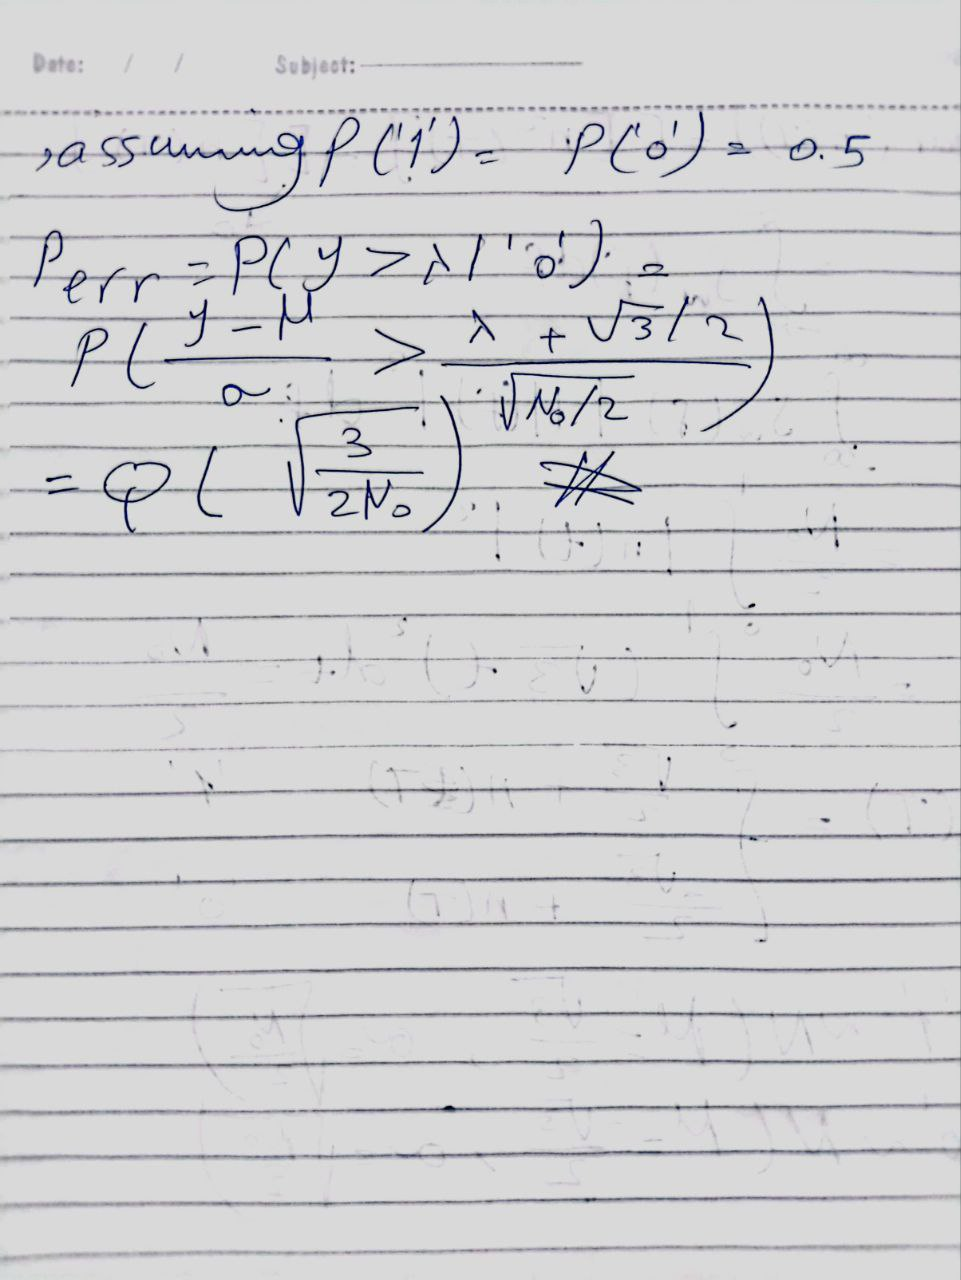 Date: / / Subject:
, assuming P('1') = P('0') = 0.5
Perr = P(y > λ | '0') =
P( (y - μ)/σ > (λ + √3/2)/√(N₀/2) )
= Q( √(3/(2N₀)) )